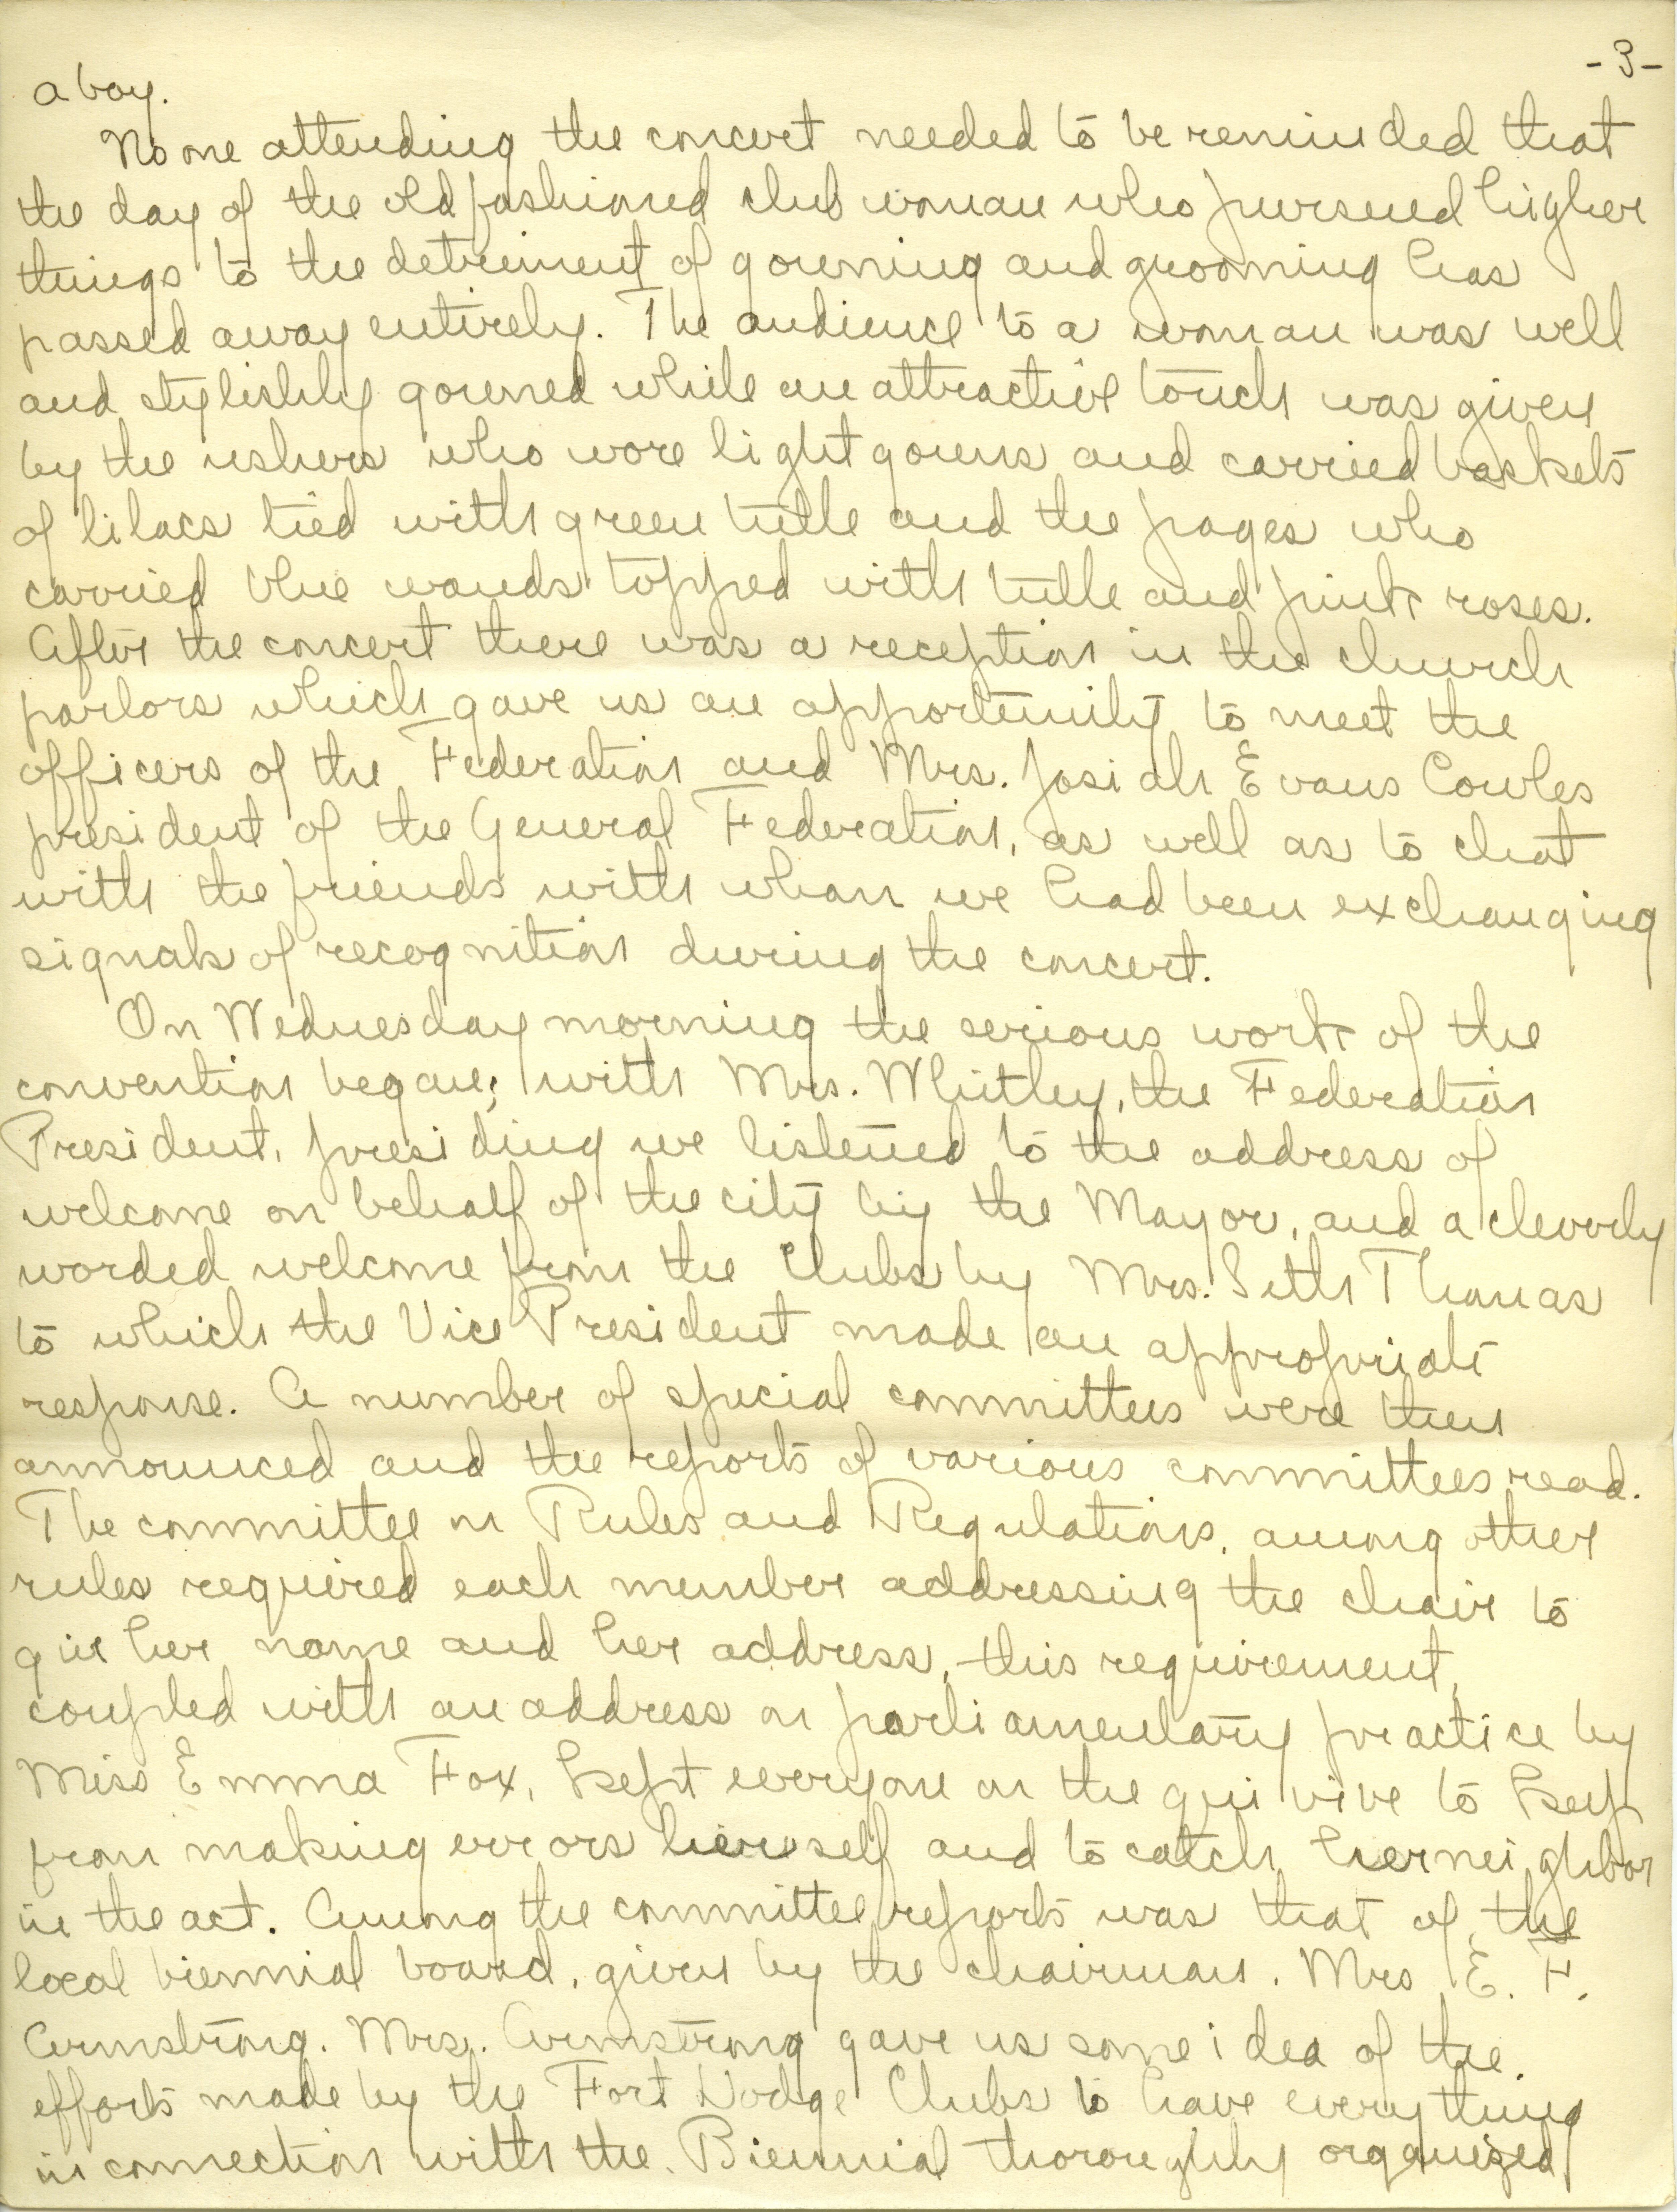 -3-
a boy.
No one attending the concert needed to be reminded that
the day of the old fashioned club woman who pursued higher
things to the detriment of gowning and grooming has
passed away entirely. The audience to a woman was well
and stylishly gowned while an attractive touch was given
by the ushers who wore light gowns and carried baskets
of lilacs tied with green tulle and the pages who
carried blue wands topped with tulle and pink roses.
After the concert there was a reception in the church
parlors which gave us an opportunity to meet the
officers of the Federation and Mrs. Josiah Evans Cowles
president of the General Federation, as well as to chat
with the friends with whom we had been exchanging
signals of recognition during the concert.
On Wednesday morning the serious work of the
convention began; with Mrs. Whitley, the Federation
President, presiding we listened to the address of
welcome on behalf of the city by the Mayor, and a cleverly
worded welcome from the Clubs by Mrs. Seth Thomas
to which the Vice President made an appropriate
response. A number of special committees were then
announced and the reports of various committees read.
The committee on Rules and Regulations, among other
rules required each member addressing the chair to
give her name and her address, this requirement,
coupled with an address on parliamentary practice by
Miss Emma Fox, kept everyone on the qui vive to keep
from making errors herself and to catch her neighbor
in the act. Among the committee reports was that of the
local biennial board, given by the chairman. Mrs E. F.
Armstrong. Mrs. Armstrong gave us some idea of the
efforts made by the Fort Dodge Clubs to have everything
in connection with the Biennial thoroughly organized